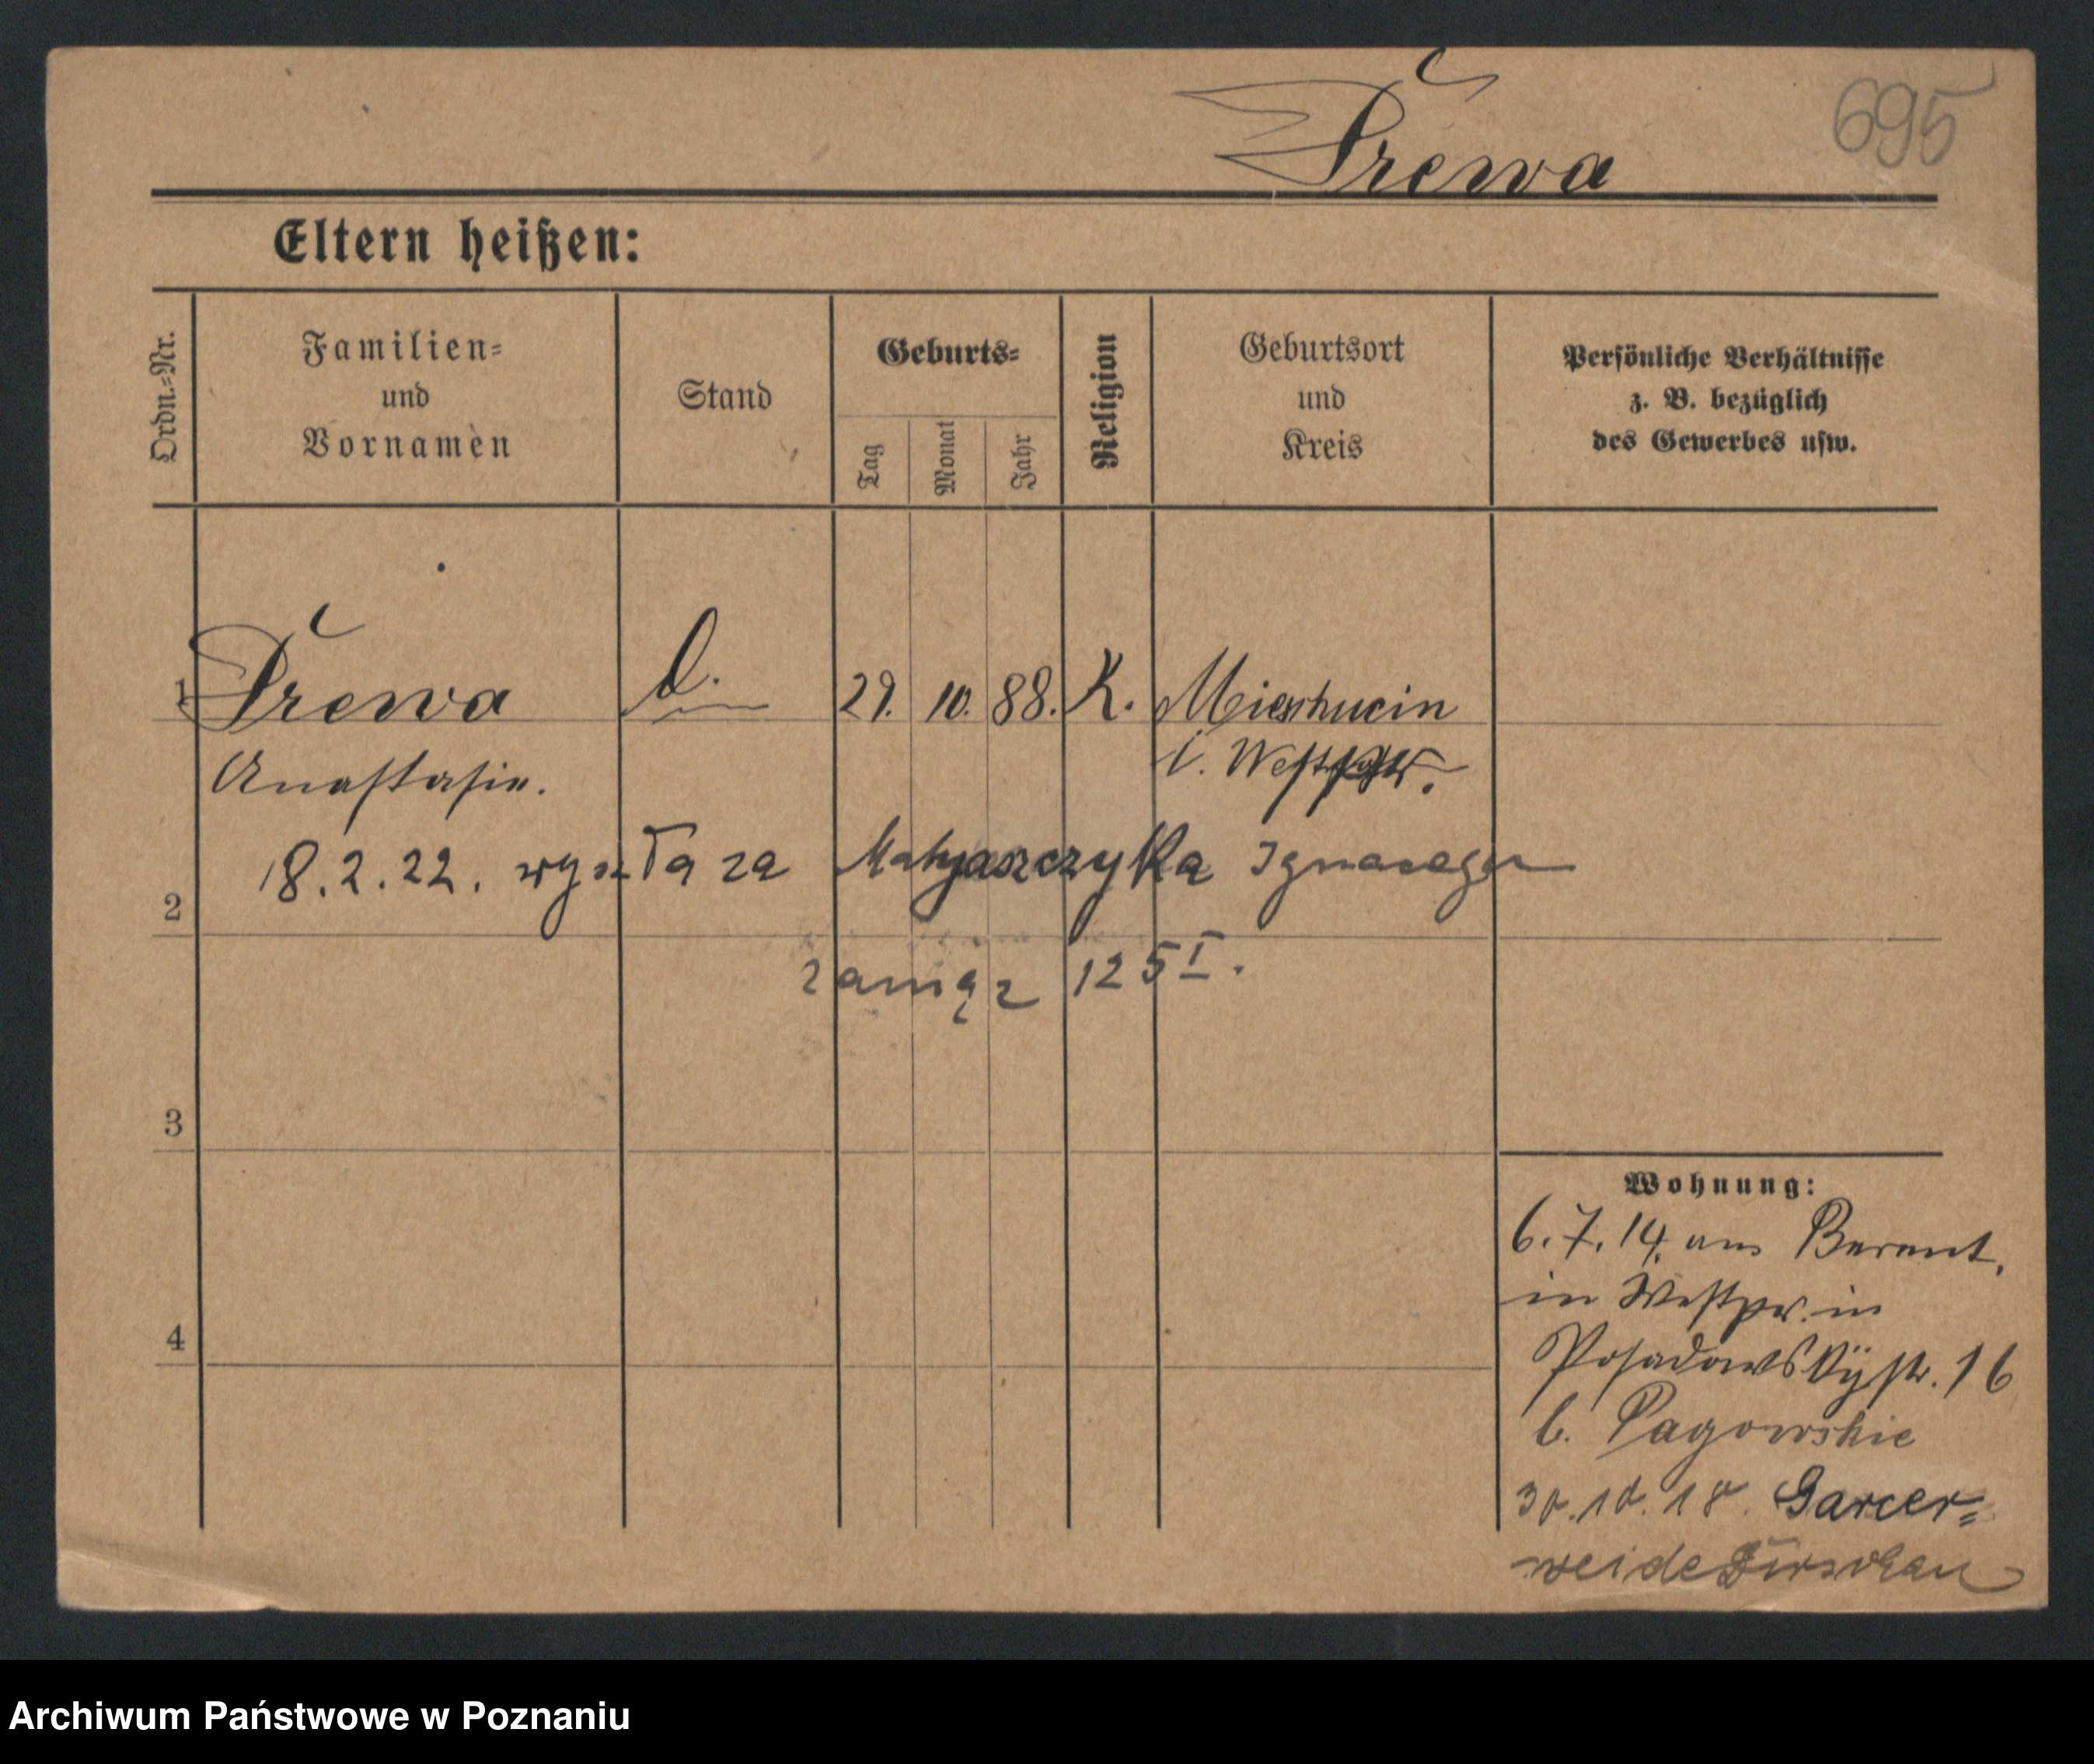 Trewa
695
Eltern heißen:
Ordn.=Nr.
Familien=
und
Vornamen
Stand
Geburts=
Tag
Monat
Jahr
Religion
Geburtsort
und
Kreis
Persönliche Verhältnisse
z. B. bezüglich
des Gewerbes usw.
1
Trewa
D.
29. 10. 88.
K.
Anastasie.
i.
18.2.22. wyszła za Matyaszczyka Ignacego
2
zamąz 125 I.
3
4
Wohnung:
6.7.14. aus Berent,
in Westpr. in
Posadowskÿstr. 16
b. Pagowskie
30.10.18.
weide Dirschau
Archiwum Państwowe w Poznaniu